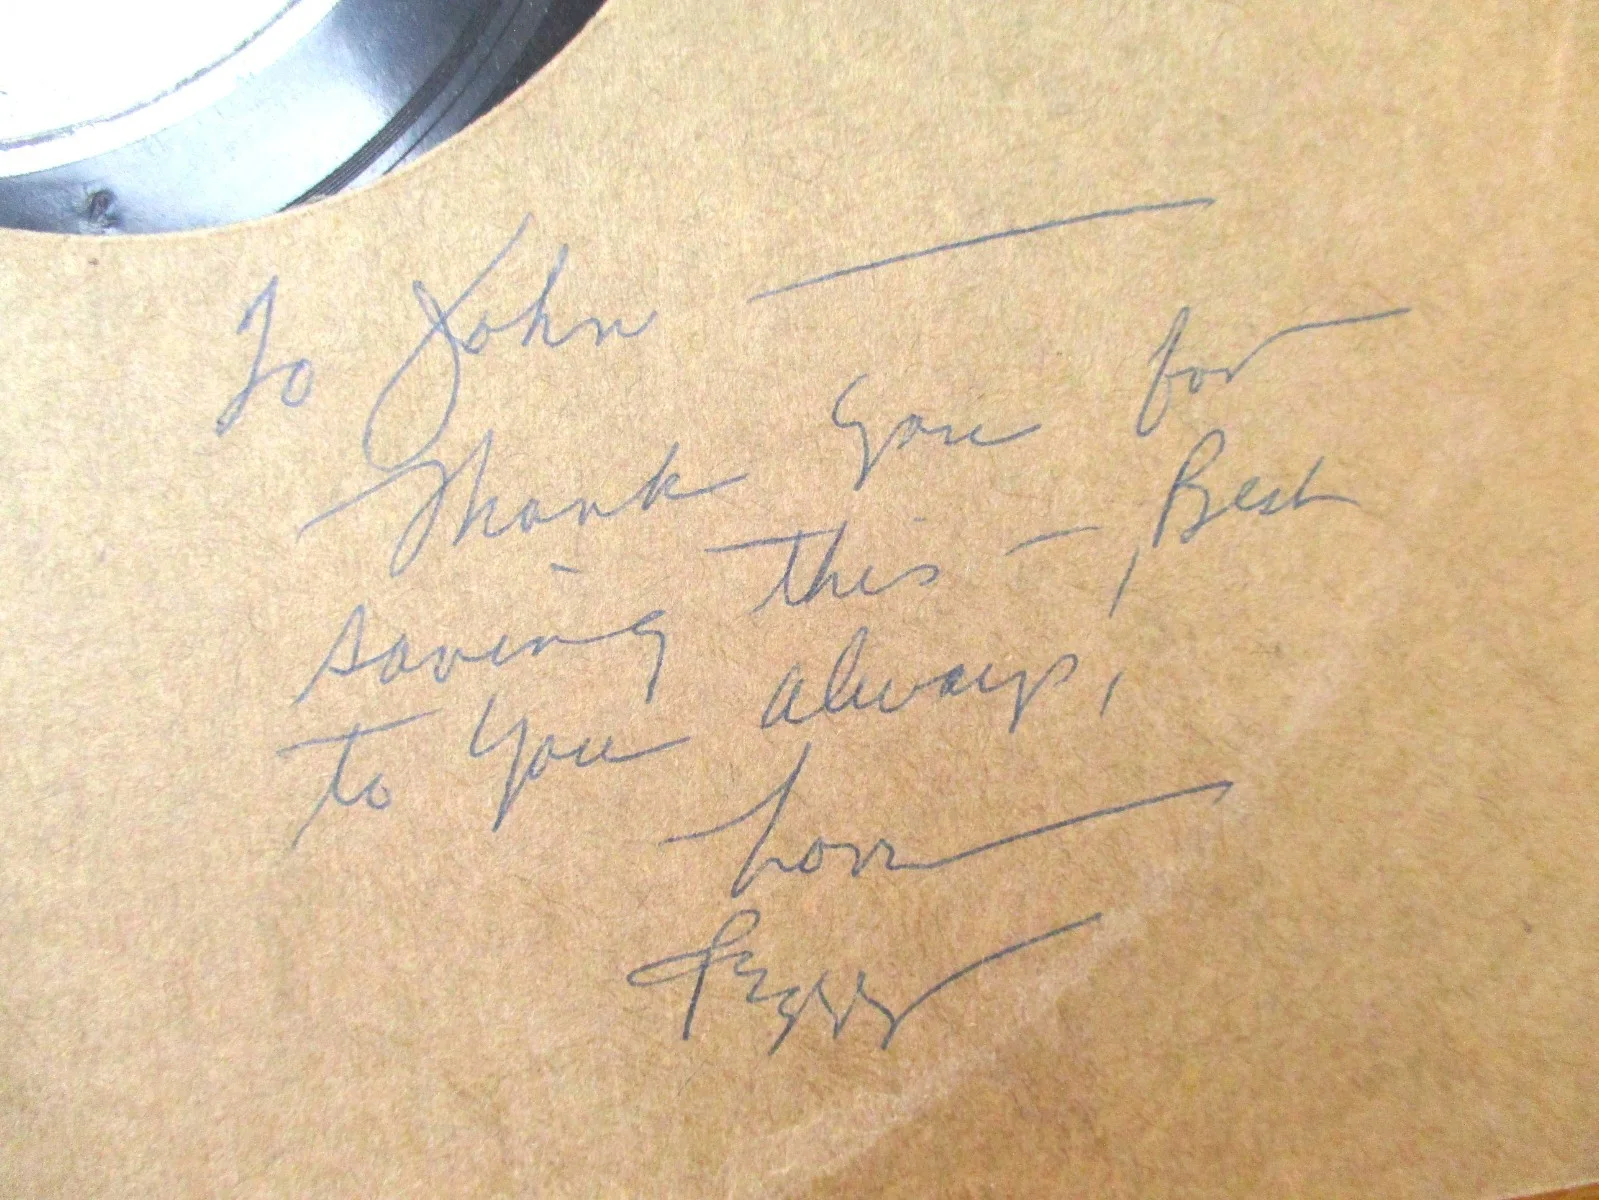 To John —
Thank you for
saving this —, Best
to you always,
Love
Peggy